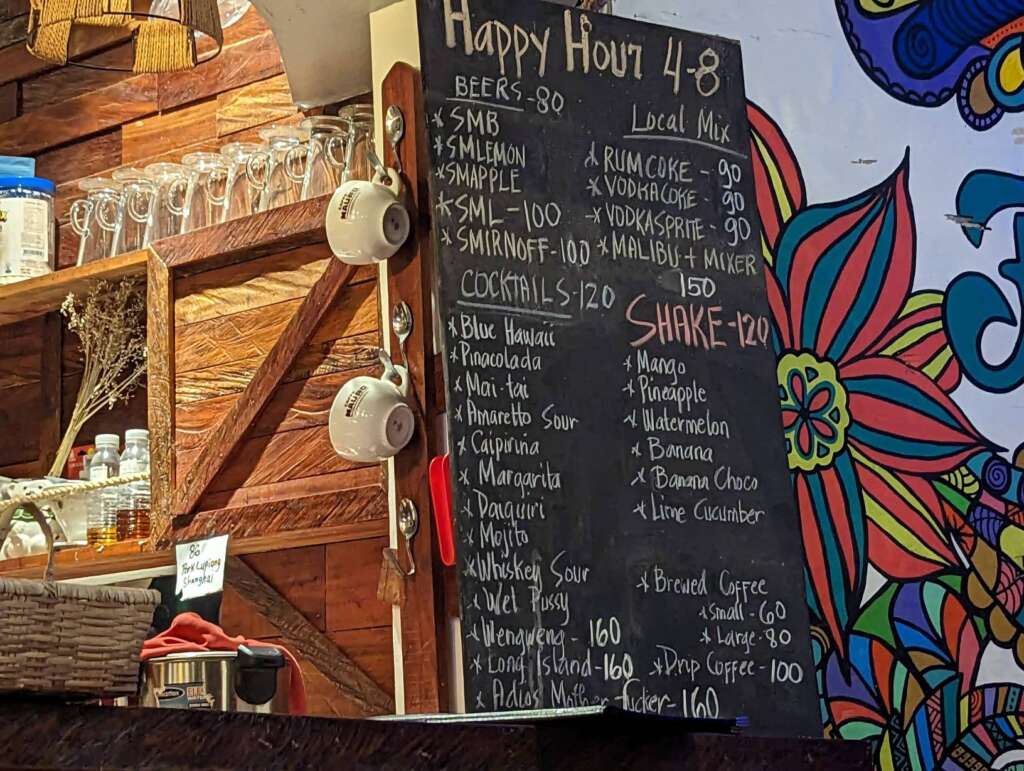 Happy Hour 4-8
BEERS-80
* SMB
* SMLEMON
* SMAPPLE
* SML-100
* SMIRNOFF-100
Local Mix
* RUMCOKE - 90
* VODKACOKE - 90
* VODKASPRITE - 90
* MALIBU + MIXER
150
COCKTAILS-120
* Blue Hawaii
* Pinacolada
* Mai-tai
* Amaretto Sour
* Caipirina
* Margarita
* Daiquiri
* Mojito
* Whiskey Sour
* Wet Pussy
* Wengweng - 160
* Long Island - 160
* Adios Mother Fucker - 160
SHAKE-120
* Mango
* Pineapple
* Watermelon
* Banana
* Banana Choco
* Lime Cucumber
* Brewed Coffee
* Small - 60
* Large - 80
* Drip Coffee - 100
86
Pork Lupiong
Shanghai